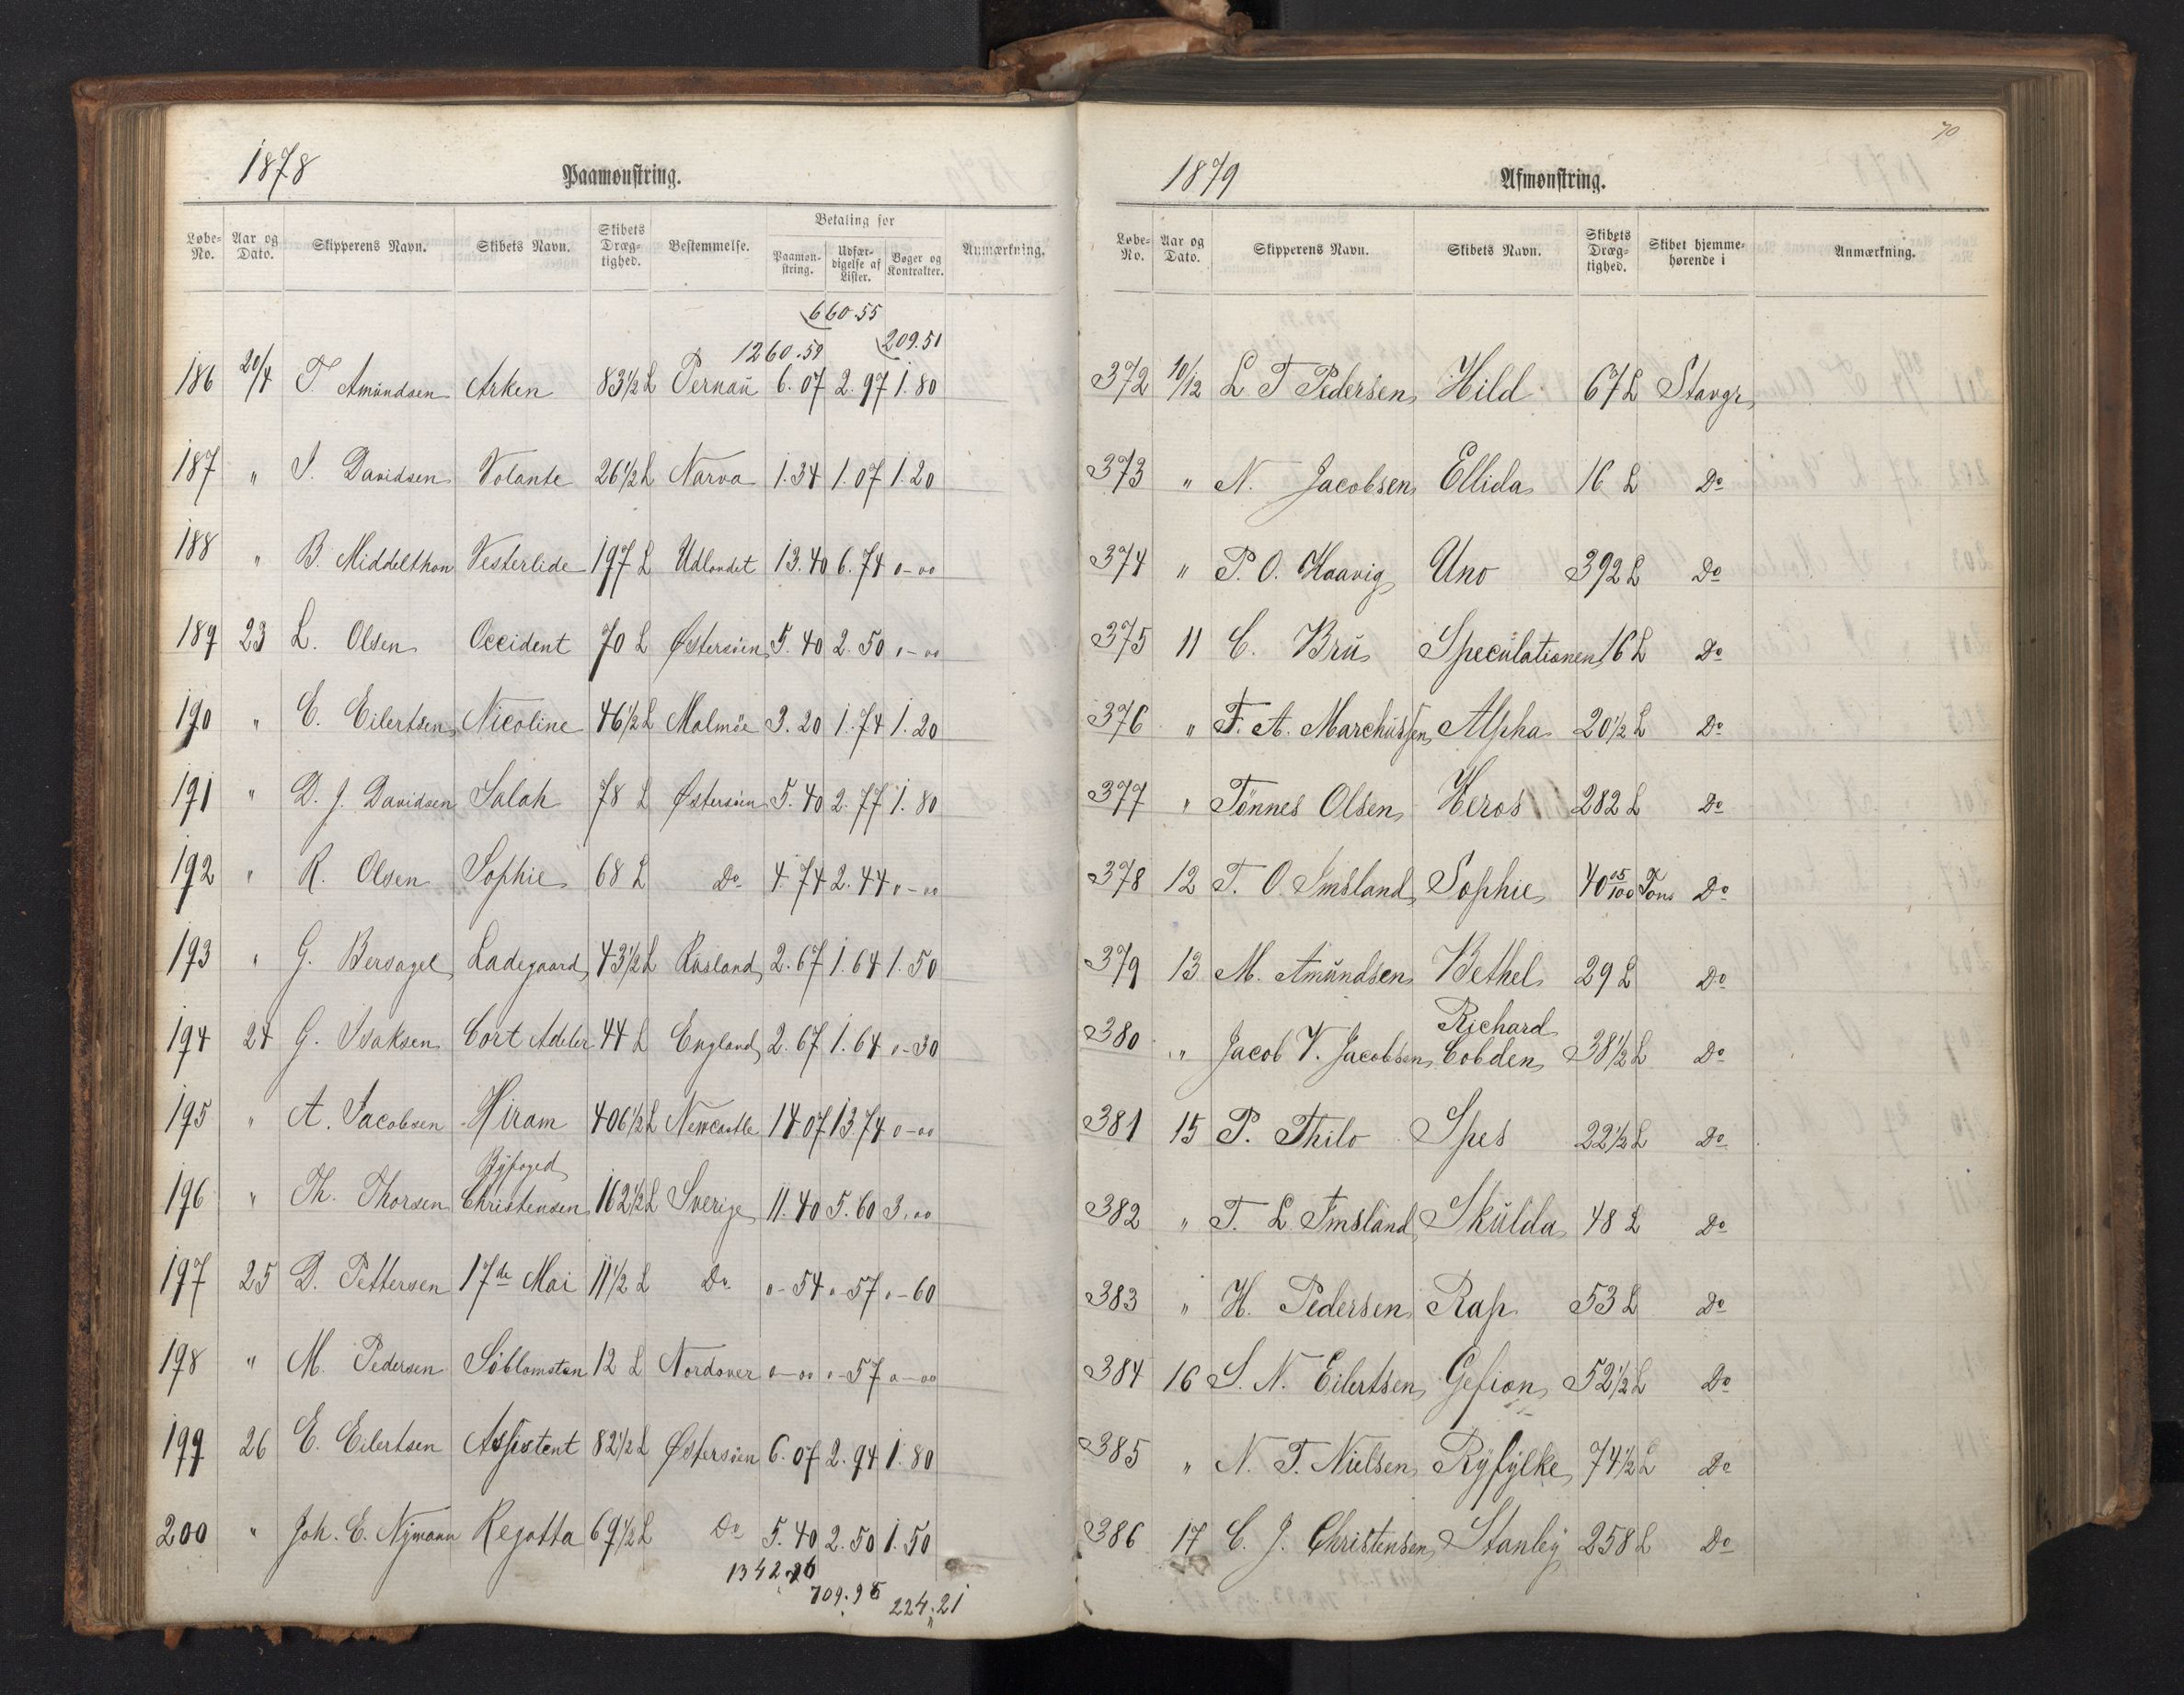 1878
Paamønstring.
Løbe-No. Aar og Dato. Skipperens Navn. Skibets Navn. Skibets Dræg-tighed. Bestemmelse. Betaling for Paamøn-string. Udfær-digelse af Lister. Bøger og Kontrakter. Anmærkning.
660.55
1260.50 209.51
186 20/4 T. Amundsen Arken 83 1/2 L Pernau 6.07 2.97 1.80
187 " S. Davidsen Volante 26 1/2 L Narva 1.34 1.07 1.20
188 " B. Middelthon Vesterlide 197 L Udlandet 13.40 6.74 0-00
189 23 L. Olsen Occident 70 L Østersøen 5.40 2.50 0-00
190 " E. Eilertsen Nicoline 46 1/2 L Malmöe 3.20 1.74 1.20
191 " D. J. Davidsen Salah 78 L Østersøen 5.40 2.77 1.80
192 " R. Olsen Sophie 68 L Do 4.74 2.44 0-00
193 " G. Bersagel Ladegaard 43 1/2 L Rusland 2.67 1.64 1.50
194 24 G. Isaksen Cort Adeler 44 L England 2.67 1.64 0-30
195 " A. Jacobsen Hiram 406 1/2 L Newcastle 14.07 13.74 0-00
Byfoged
196 " Th. Thorsen Christensen 162 1/2 L Sverige 11.40 5.60 3.00
197 25 D. Pettersen 17de Mai 11 1/2 L Do 0-54 0-57 0-60
198 " M. Pedersen Söblomsten 12 L Nordover 0-00 0-57 0-00
199 26 E. Eilertsen Assistent 82 1/2 L Østersøen 6.07 2.94 1.80
200 " Joh. E. Nymann Regatta 69 1/2 L Do 5.40 2.50 1.50
224.21
70
1879
Afmønstring.
Løbe-No. Aar og Dato. Skipperens Navn. Skibets Navn. Skibets Dræg-tighed. Skibet hjemme-hørende i Anmærkning.
372 10/12 L T Pedersen Hild 67 L Stavgr
373 " N. Jacobsen Ellida 16 L Do
374 " P. O. Haavig Uno 392 L Do
375 11 C. Bru Speculationen 16 L Do
376 " F. A. Marchussen Alpha 20 1/2 L Do
377 " Tönnes Olsen Heros 282 L Do
378 12 T. O Imsland Sophie 40 05/100 Tons Do
379 13 M. Amundsen Bethel 29 L Do
Richard
380 " Jacob V. Jacobsen Cobden 38 1/2 L Do
381 15 P. Thilo Spes 22 1/2 L Do
382 " T. L. Imsland Skulda 48 L Do
383 " H. Pedersen Rap 53 L Do
384 16 S. N. Eilertsen Gefion 52 1/2 L Do
385 " N. T. Nielsen Ryfylke 74 1/2 L Do
386 17 C. J. Christensen Stanley 258 L Do